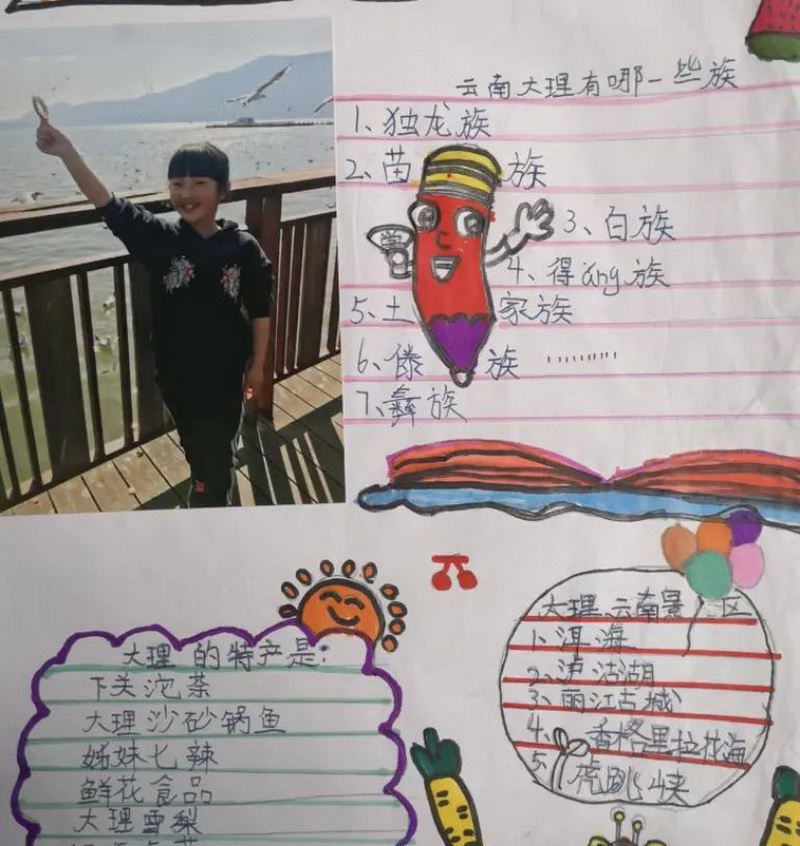 云南大理有哪一些族
1、独龙族
2、苗族
3、白族
4、得áng族
5、土家族
6、傣族 ………
7、彝族
大理的特产是：
下关沱茶
大理沙砂锅鱼
姊妹七辣
鲜花食品
大理雪梨
大理云南景区
1、洱海
2、泸沽湖
3、丽江古城
4、香格里拉花海
5、虎跳峡